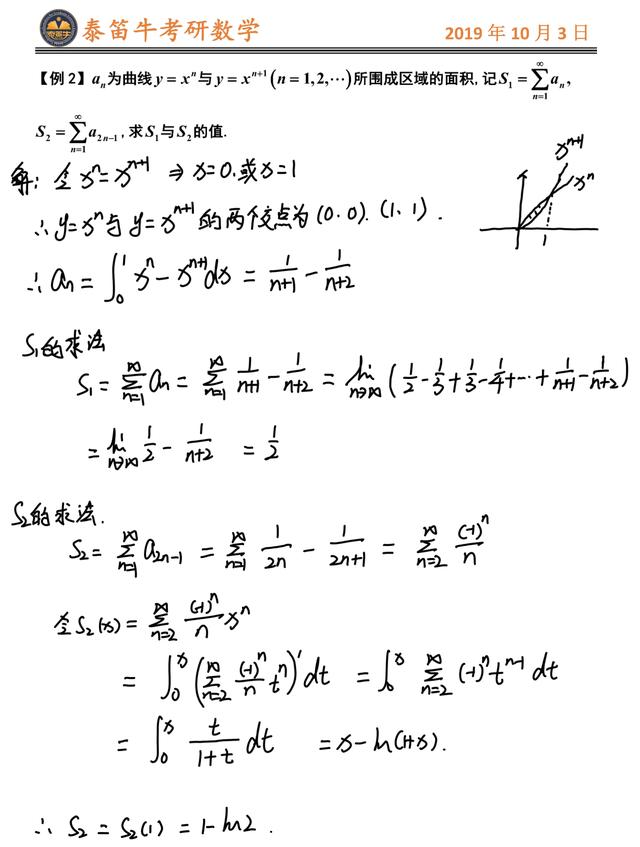 泰笛牛
泰笛牛考研数学 2019年10月3日
【例2】aₙ为曲线 y = xⁿ 与 y = xⁿ⁺¹ (n = 1,2,⋯) 所围成区域的面积,记 S₁ = ∑_{n=1}^{∞} aₙ,
S₂ = ∑_{n=1}^{∞} a₂ₙ₋₁,求 S₁ 与 S₂ 的值.
解: 令 xⁿ = xⁿ⁺¹ ⇒ x=0.或x=1
xⁿ⁺¹
xⁿ
1
∴ y=xⁿ 与 y=xⁿ⁺¹ 的两个交点为 (0.0). (1.1).
∴ aₙ = ∫₀¹ xⁿ - xⁿ⁺¹ dx = 1/(n+1) - 1/(n+2)
S₁的求法
S₁ = ∑_{n=1}^{∞} aₙ = ∑_{n=1}^{∞} 1/(n+1) - 1/(n+2) = lim_{n→∞} (1/2 - 1/3 + 1/3 - 1/4 + ⋯ + 1/(n+1) - 1/(n+2))
= lim_{n→∞} 1/2 - 1/(n+2) = 1/2
S₂的求法.
S₂ = ∑_{n=1}^{∞} a₂ₙ₋₁ = ∑_{n=1}^{∞} 1/(2n) - 1/(2n+1) = ∑_{n=2}^{∞} (-1)ⁿ/n
令 S₂(x) = ∑_{n=2}^{∞} (-1)ⁿ/n xⁿ
= ∫₀ˣ (∑_{n=2}^{∞} (-1)ⁿ/n tⁿ)' dt = ∫₀ˣ ∑_{n=2}^{∞} (-1)ⁿ tⁿ⁻¹ dt
= ∫₀ˣ t/(1+t) dt = x - ln(1+x).
∴ S₂ = S₂(1) = 1 - ln2.